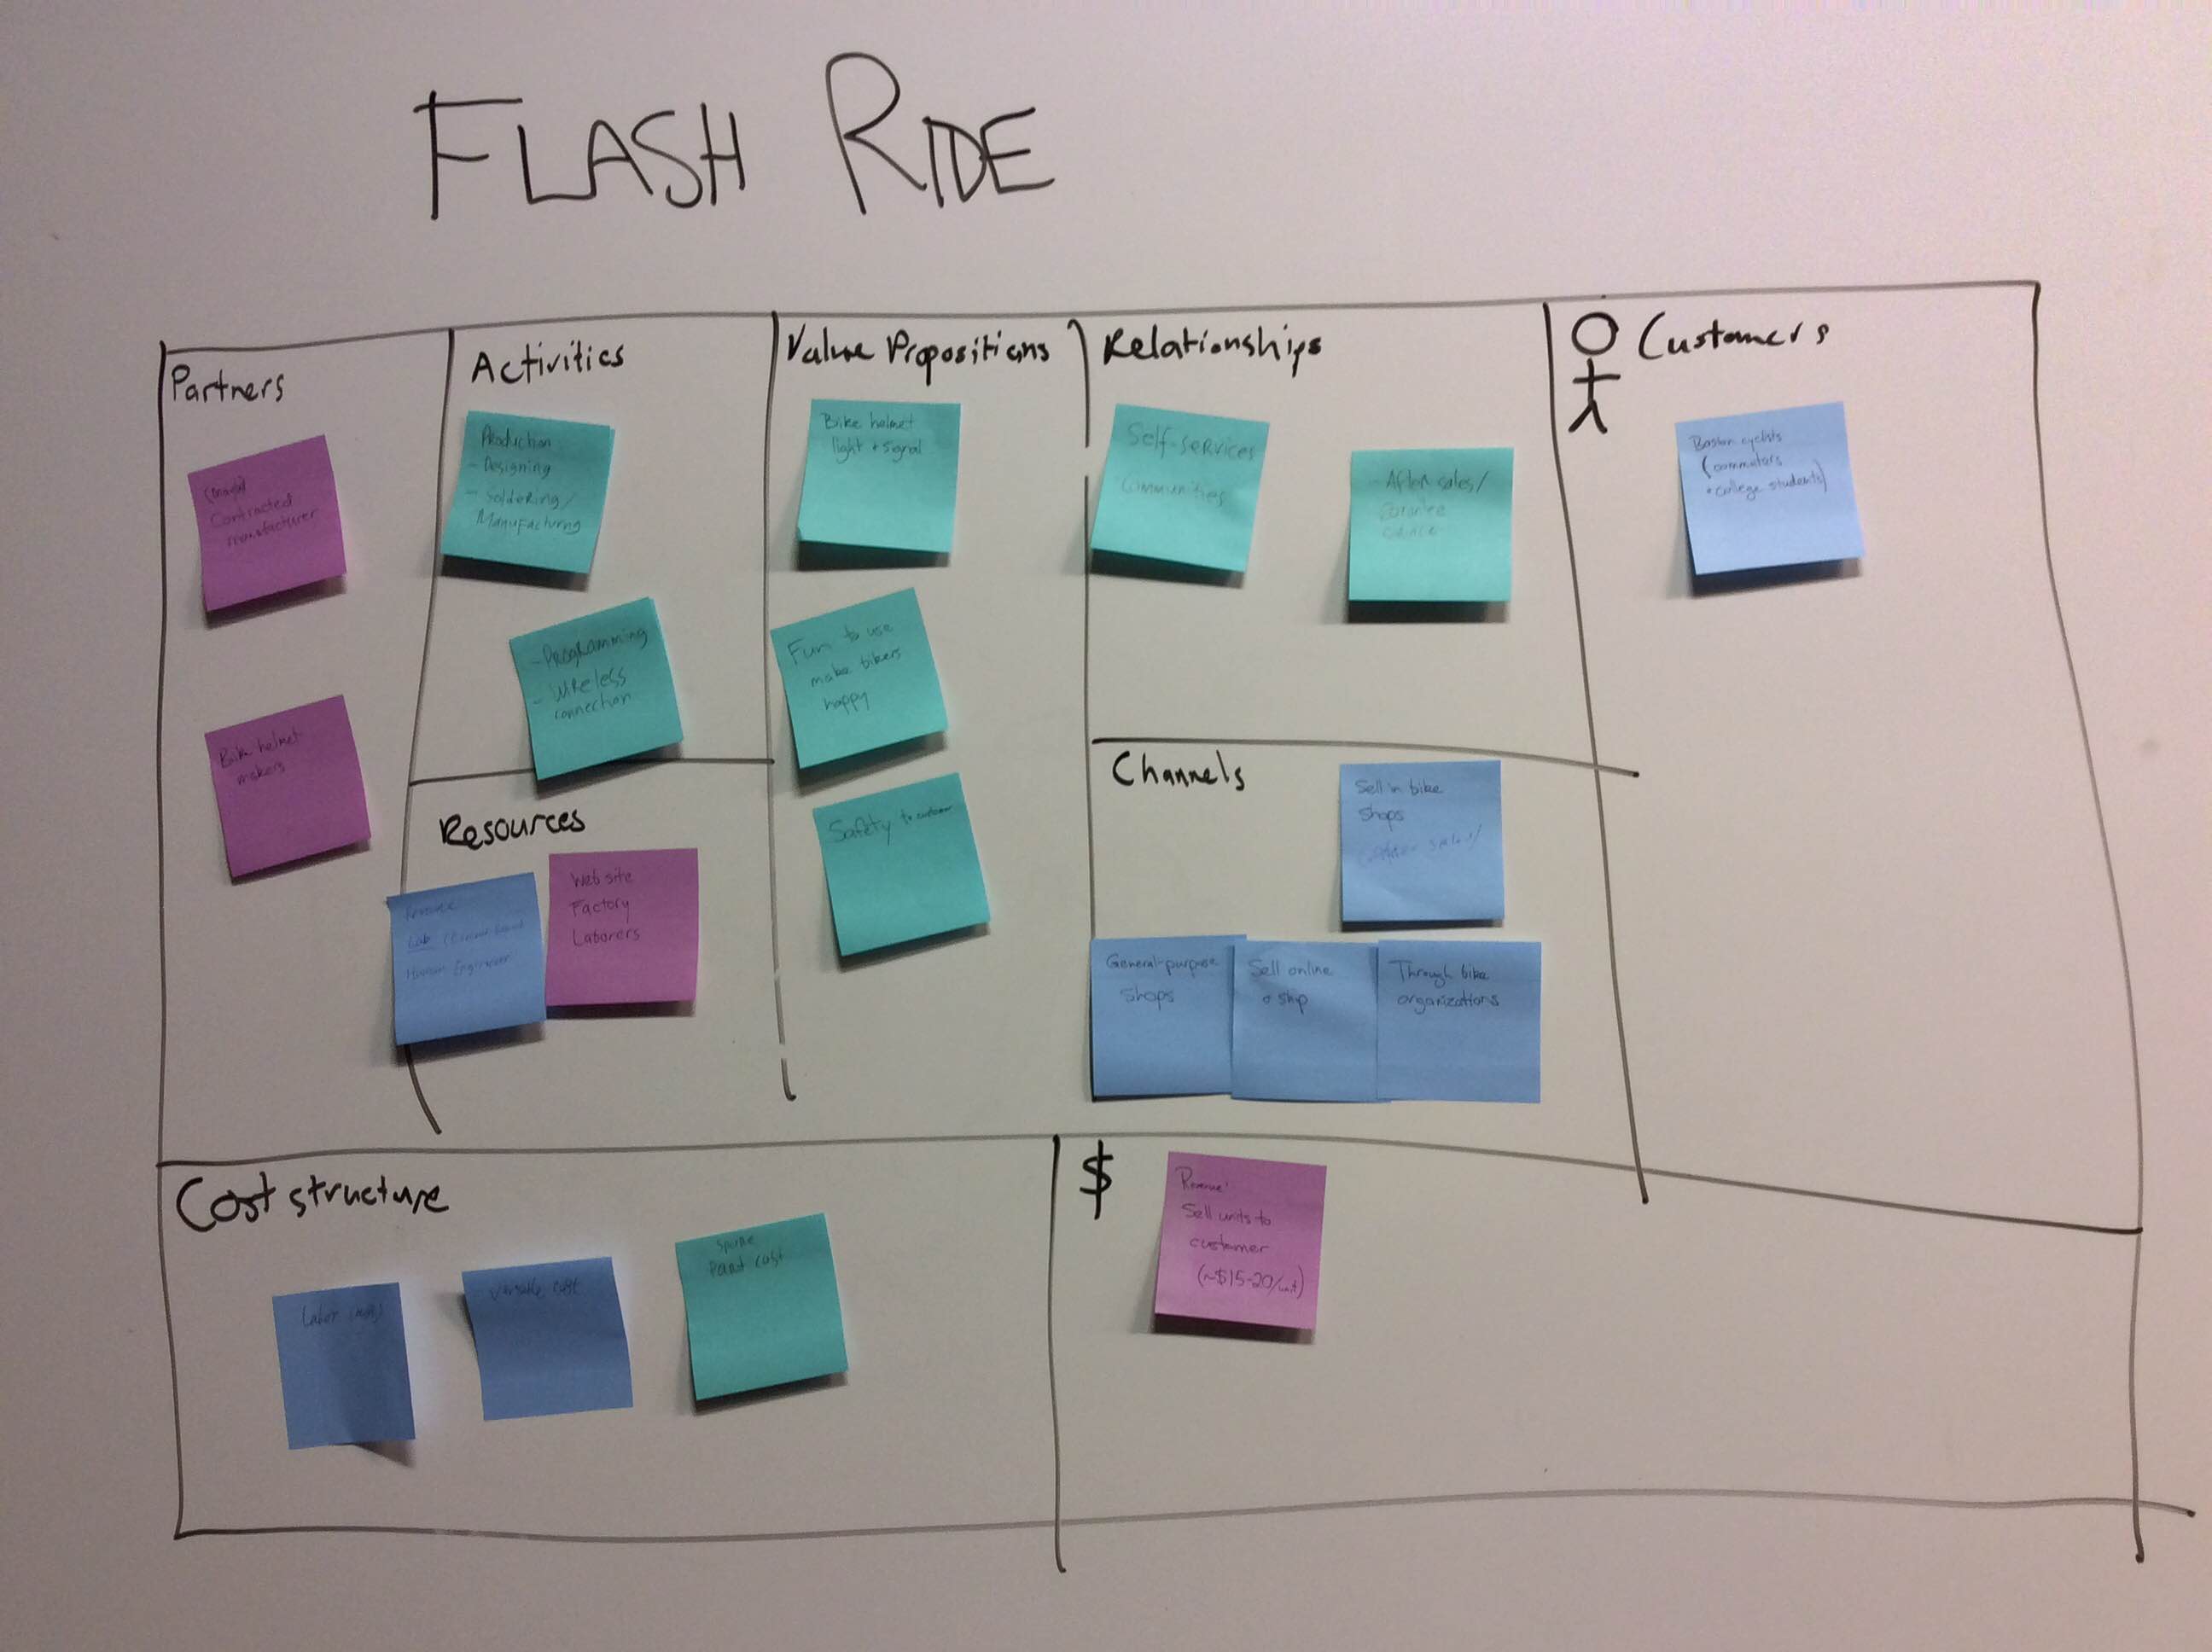 FLASH RIDE
Partners
Contracted
manufacturer
Bike helmet
makers
Activities
Production
- Designing
- Soldering/
Manufacturing
- Programming
- Wireless
connection
Resources
Lab
Human Engineer
Website
Factory
Laborers
Value Propositions
Bike helmet
light + signal
Fun to use
make bikers
happy
Safety to customer
Relationships
Self-services
Communities
After sales/
Channels
Sell in bike
shops
General-purpose
shops
Sell online
+ ship
Through bike
organizations
Customers
Boston cyclists
(commuters
+ college students)
Cost structure
Labor
Variable cost
Part cost
$
Revenue:
Sell units to
customer
(~$15-20/unit)